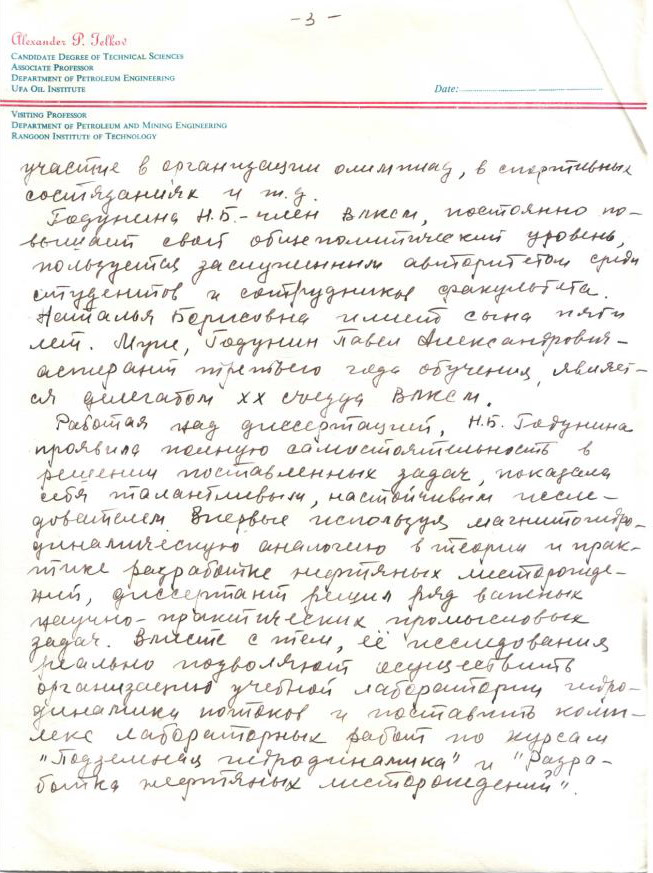 - 3 -
Alexander P. Telkov
CANDIDATE DEGREE OF TECHNICAL SCIENCES
ASSOCIATE PROFESSOR
DEPARTMENT OF PETROLEUM ENGINEERING
UFA OIL INSTITUTE
Date:
VISITING PROFESSOR
DEPARTMENT OF PETROLEUM AND MINING ENGINEERING
RANGOON INSTITUTE OF TECHNOLOGY
участие в организации олимпиад, в спортивных
состязаниях и т.д.
Годунина Н.Б. - член ВЛКСМ, постоянно по-
вышает свой общеполитический уровень,
пользуется заслуженным авторитетом среди
студентов и сотрудников факультета.
Наталья Борисовна имеет сына пяти
лет. Муж, Годунин Павел Александрович -
аспирант третьего года обучения, являет-
ся делегатом XX съезда ВЛКСМ.
Работая над диссертацией, Н.Б. Годунина
проявила полную самостоятельность в
решении поставленных задач, показала
себя талантливым, настойчивым иссле-
дователем. Впервые используя магнитогидро-
динамическую аналогию в теории и прак-
тике разработке нефтяных месторожде-
ний, диссертант решил ряд важных
научно-практических промысловых
задач. Вместе с тем, её исследования
реально позволяют осуществить
организацию учебной лаборатории гидро-
динамики потоков и поставить комп-
лекс лабораторных работ по курсам
"Подземная гидродинамика" и "Разра-
ботка нефтяных месторождений".